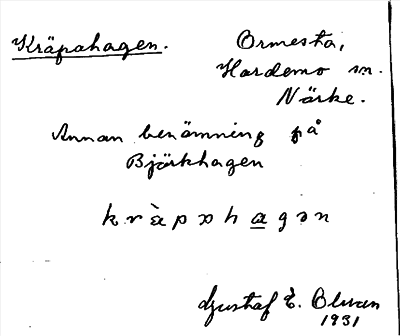 Kräpahagen. Ormesta,
Hardemo sn.
Närke.
Annan benämning på
Björkhagen
kràpahagan
Gustaf E.
1931